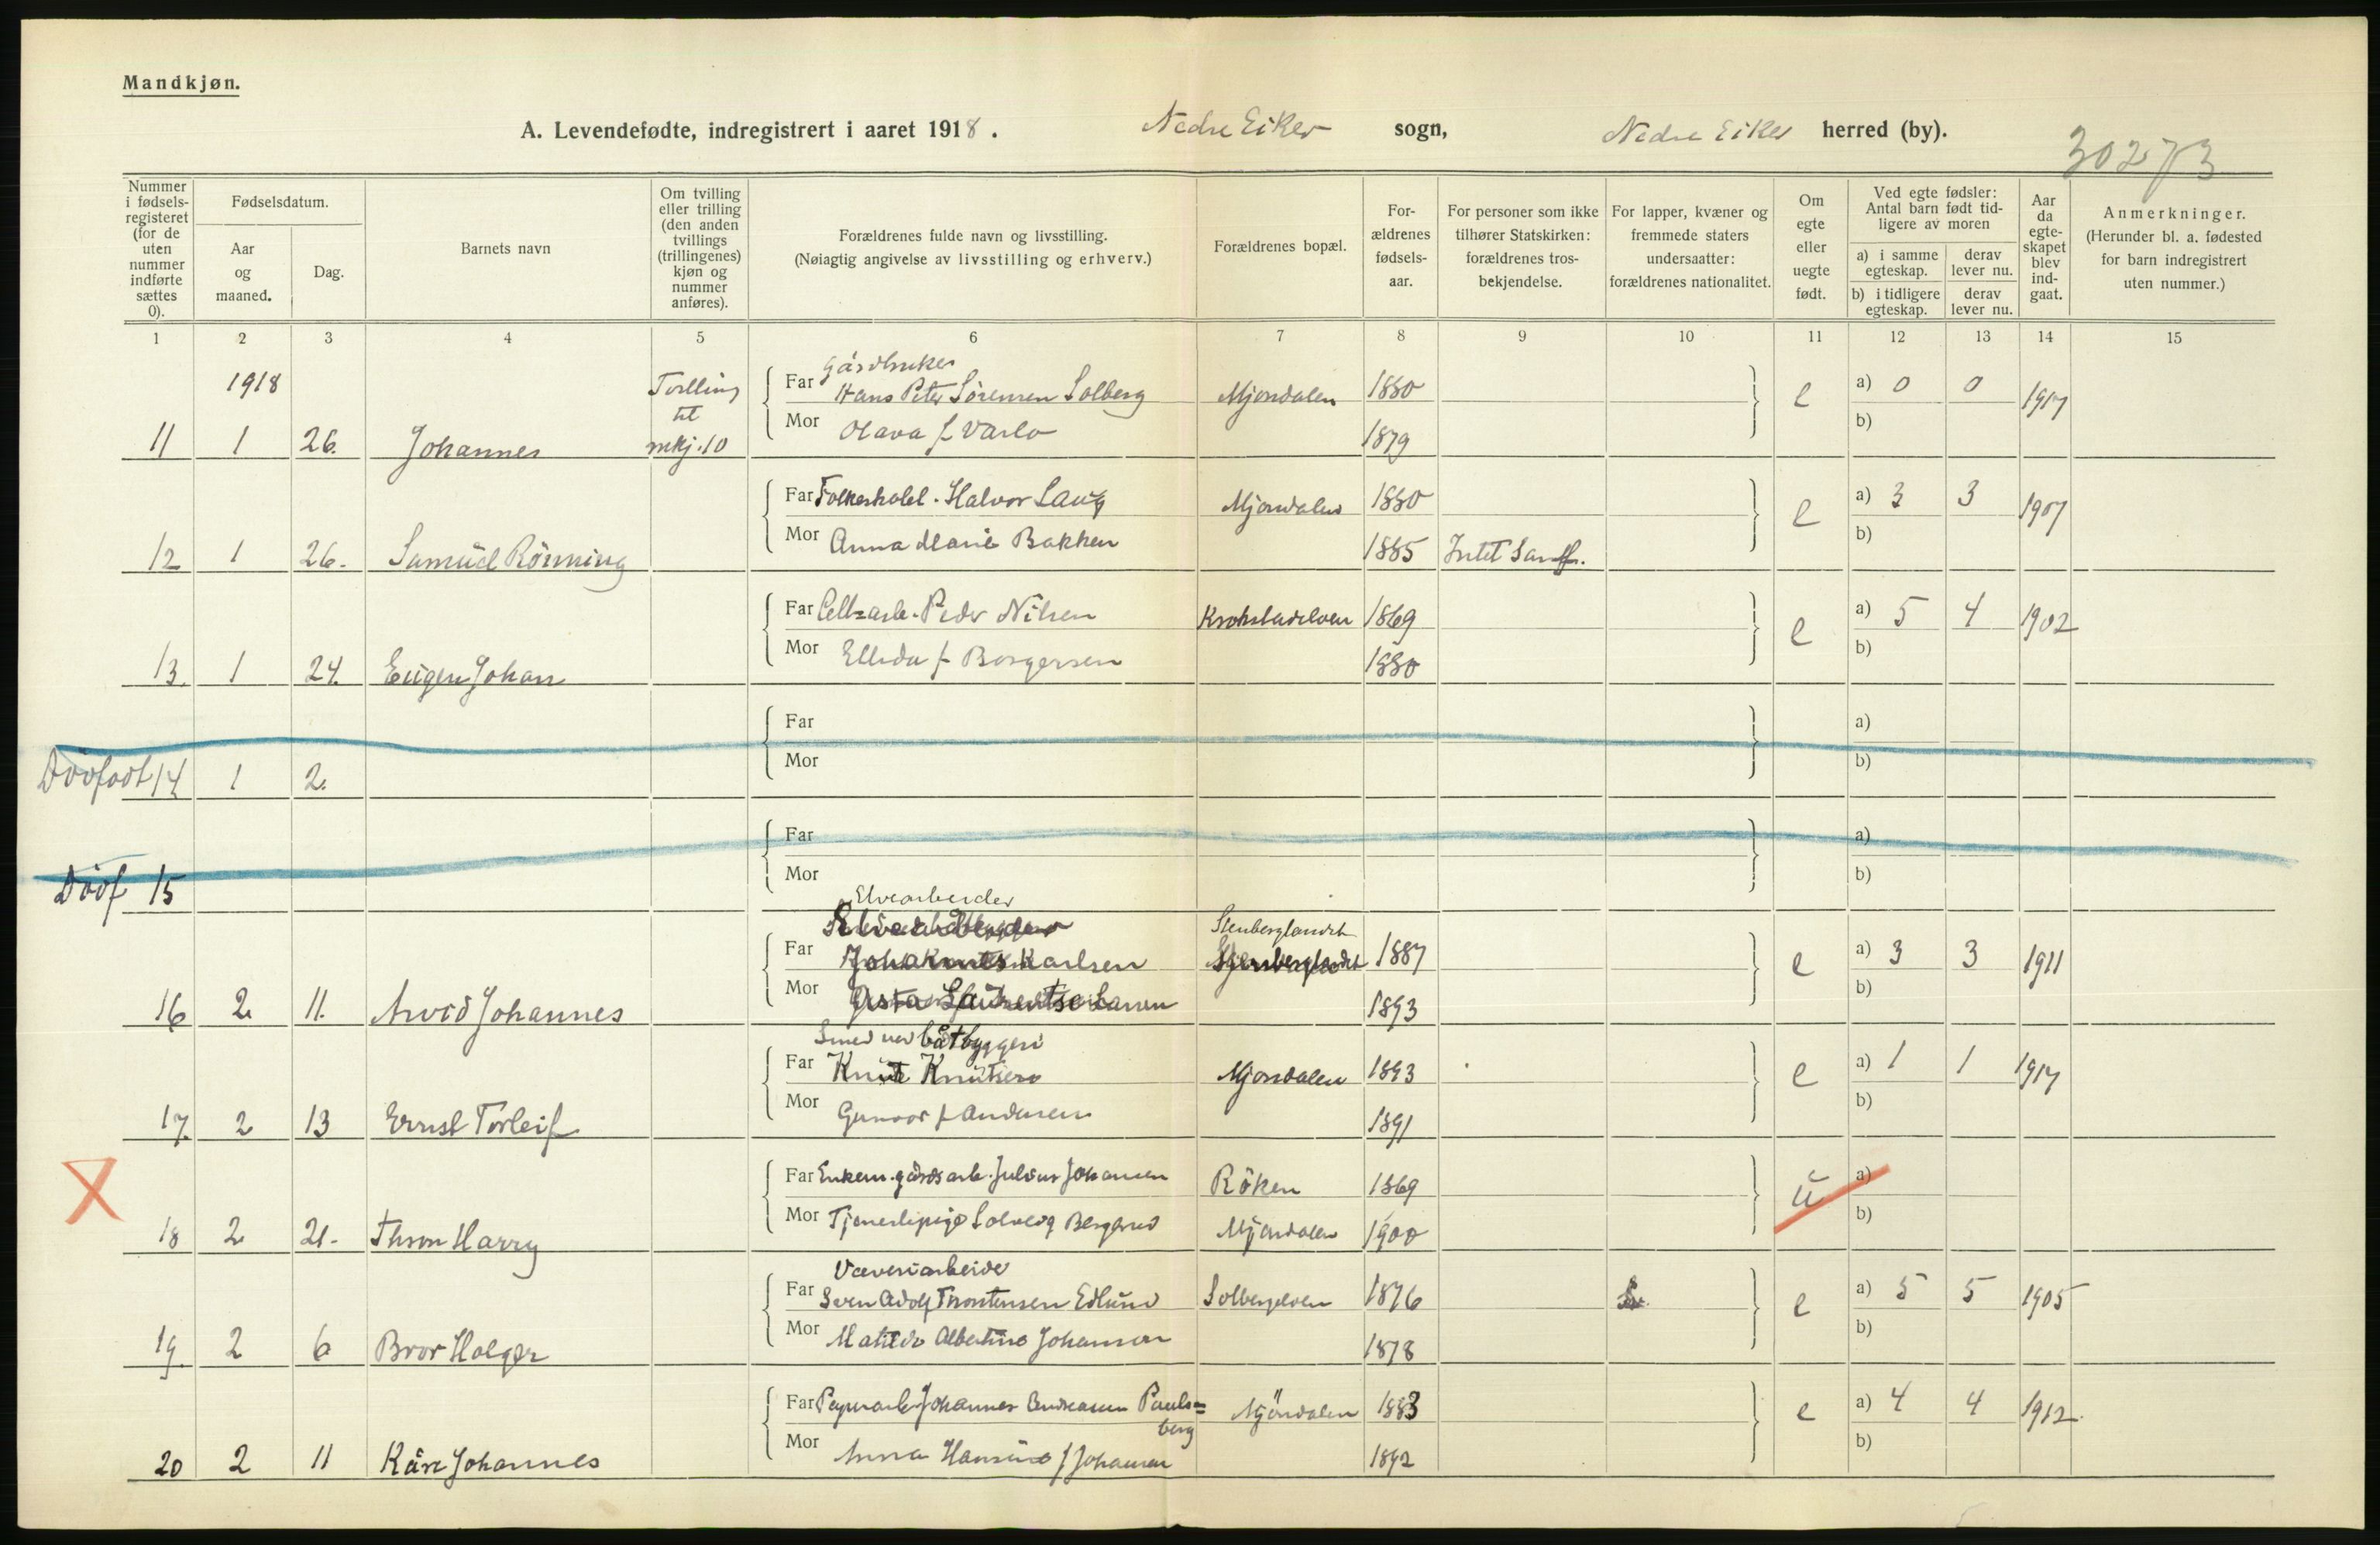 Mandkjøn.
A. Levendefødte, indregistrert i aaret 1918. Nedre Eiker sogn, Nedre Eiker herred (by).
30273
Nummer i fødsels-registeret (for de uten nummer indførte sættes 0).
Fødselsdatum.
Aar og maaned.
Dag.
Barnets navn
Om tvilling eller trilling (den anden tvillings (trillingenes) kjøn og nummer anføres).
Forældrenes fulde navn og livsstilling.
(Nøiagtig angivelse av livsstilling og erhverv.)
Forældrenes bopæl.
For-ældrenes fødsels-aar.
For personer som ikke tilhører Statskirken: forældrenes tros-bekjendelse.
For lapper, kvæner og fremmede staters undersaatter: forældrenes nationalitet.
Om egte eller uegte født.
Ved egte fødsler: Antal barn født tid-ligere av moren
a) i samme egteskap.
derav lever nu.
b) i tidligere egteskap.
derav lever nu.
Aar da egte-skapet blev ind-gaat.
Anmerkninger.
(Herunder bl. a. fødested for barn indregistrert uten nummer.)
1 2 3 4 5 6 7 8 9 10 11 12 13 14 15
1918 Tvilling til mkj. 10
Gårdbruker
Far Hans Peter Sörensen Solberg Mjøndalen 1880 e a) 0 0 1917
Mor Olava f. Varlo 1879 b)
11 1 26. Johannes
Far Folkeskolel. Halvor Laug Mjøndalen 1880 e a) 3 3 1907
Mor Anna Marie Bakken 1885 Intet Samf. b)
12 1 26. Samuel Rönning
Far Cell=arb. Peder Nilsen Krokstadelven 1869 e a) 5 4 1902
Mor Ellida f. Borgersen 1880 b)
13. 1 24. Eugen Johan
Far a)
Mor b)
Dödfødt 14 1 2.
Far a)
Mor b)
Dödf 15
Elvearbeider
Far Karlsen Stenberglandet 1887 e a) 3 3 1911
Mor Larsen 1893 b)
16 2 11. Arvid Johannes
Smed ved båtbyggeri
Far Knut Knutsen Mjøndalen 1893 e a) 1 1 1917
Mor Gunvor f. Andersen 1891 b)
17. 2 13 Ernst Torleif
Far Enkem. gårdsarb. Julius Johansen Röken 1869 u a)
Mor Tjenestepige Solveig Mjøndalen 1900 b)
X
18 2 21. Harry
Væveriarbeider
Far Sven Adolf Thorstensen Edlund Solbergelven 1876 Sv. e a) 5 5 1905
Mor Matilda Albertine Johanson 1878 b)
19. 2 6 Bror Holger
Far Papirarb. Johannes Andreasen Pauls=berg Mjöndalen 1883 e a) 4 4 1912.
Mor Anna Hansine f. Johansen 1892 b)
20 2 11 Kåre Johannes